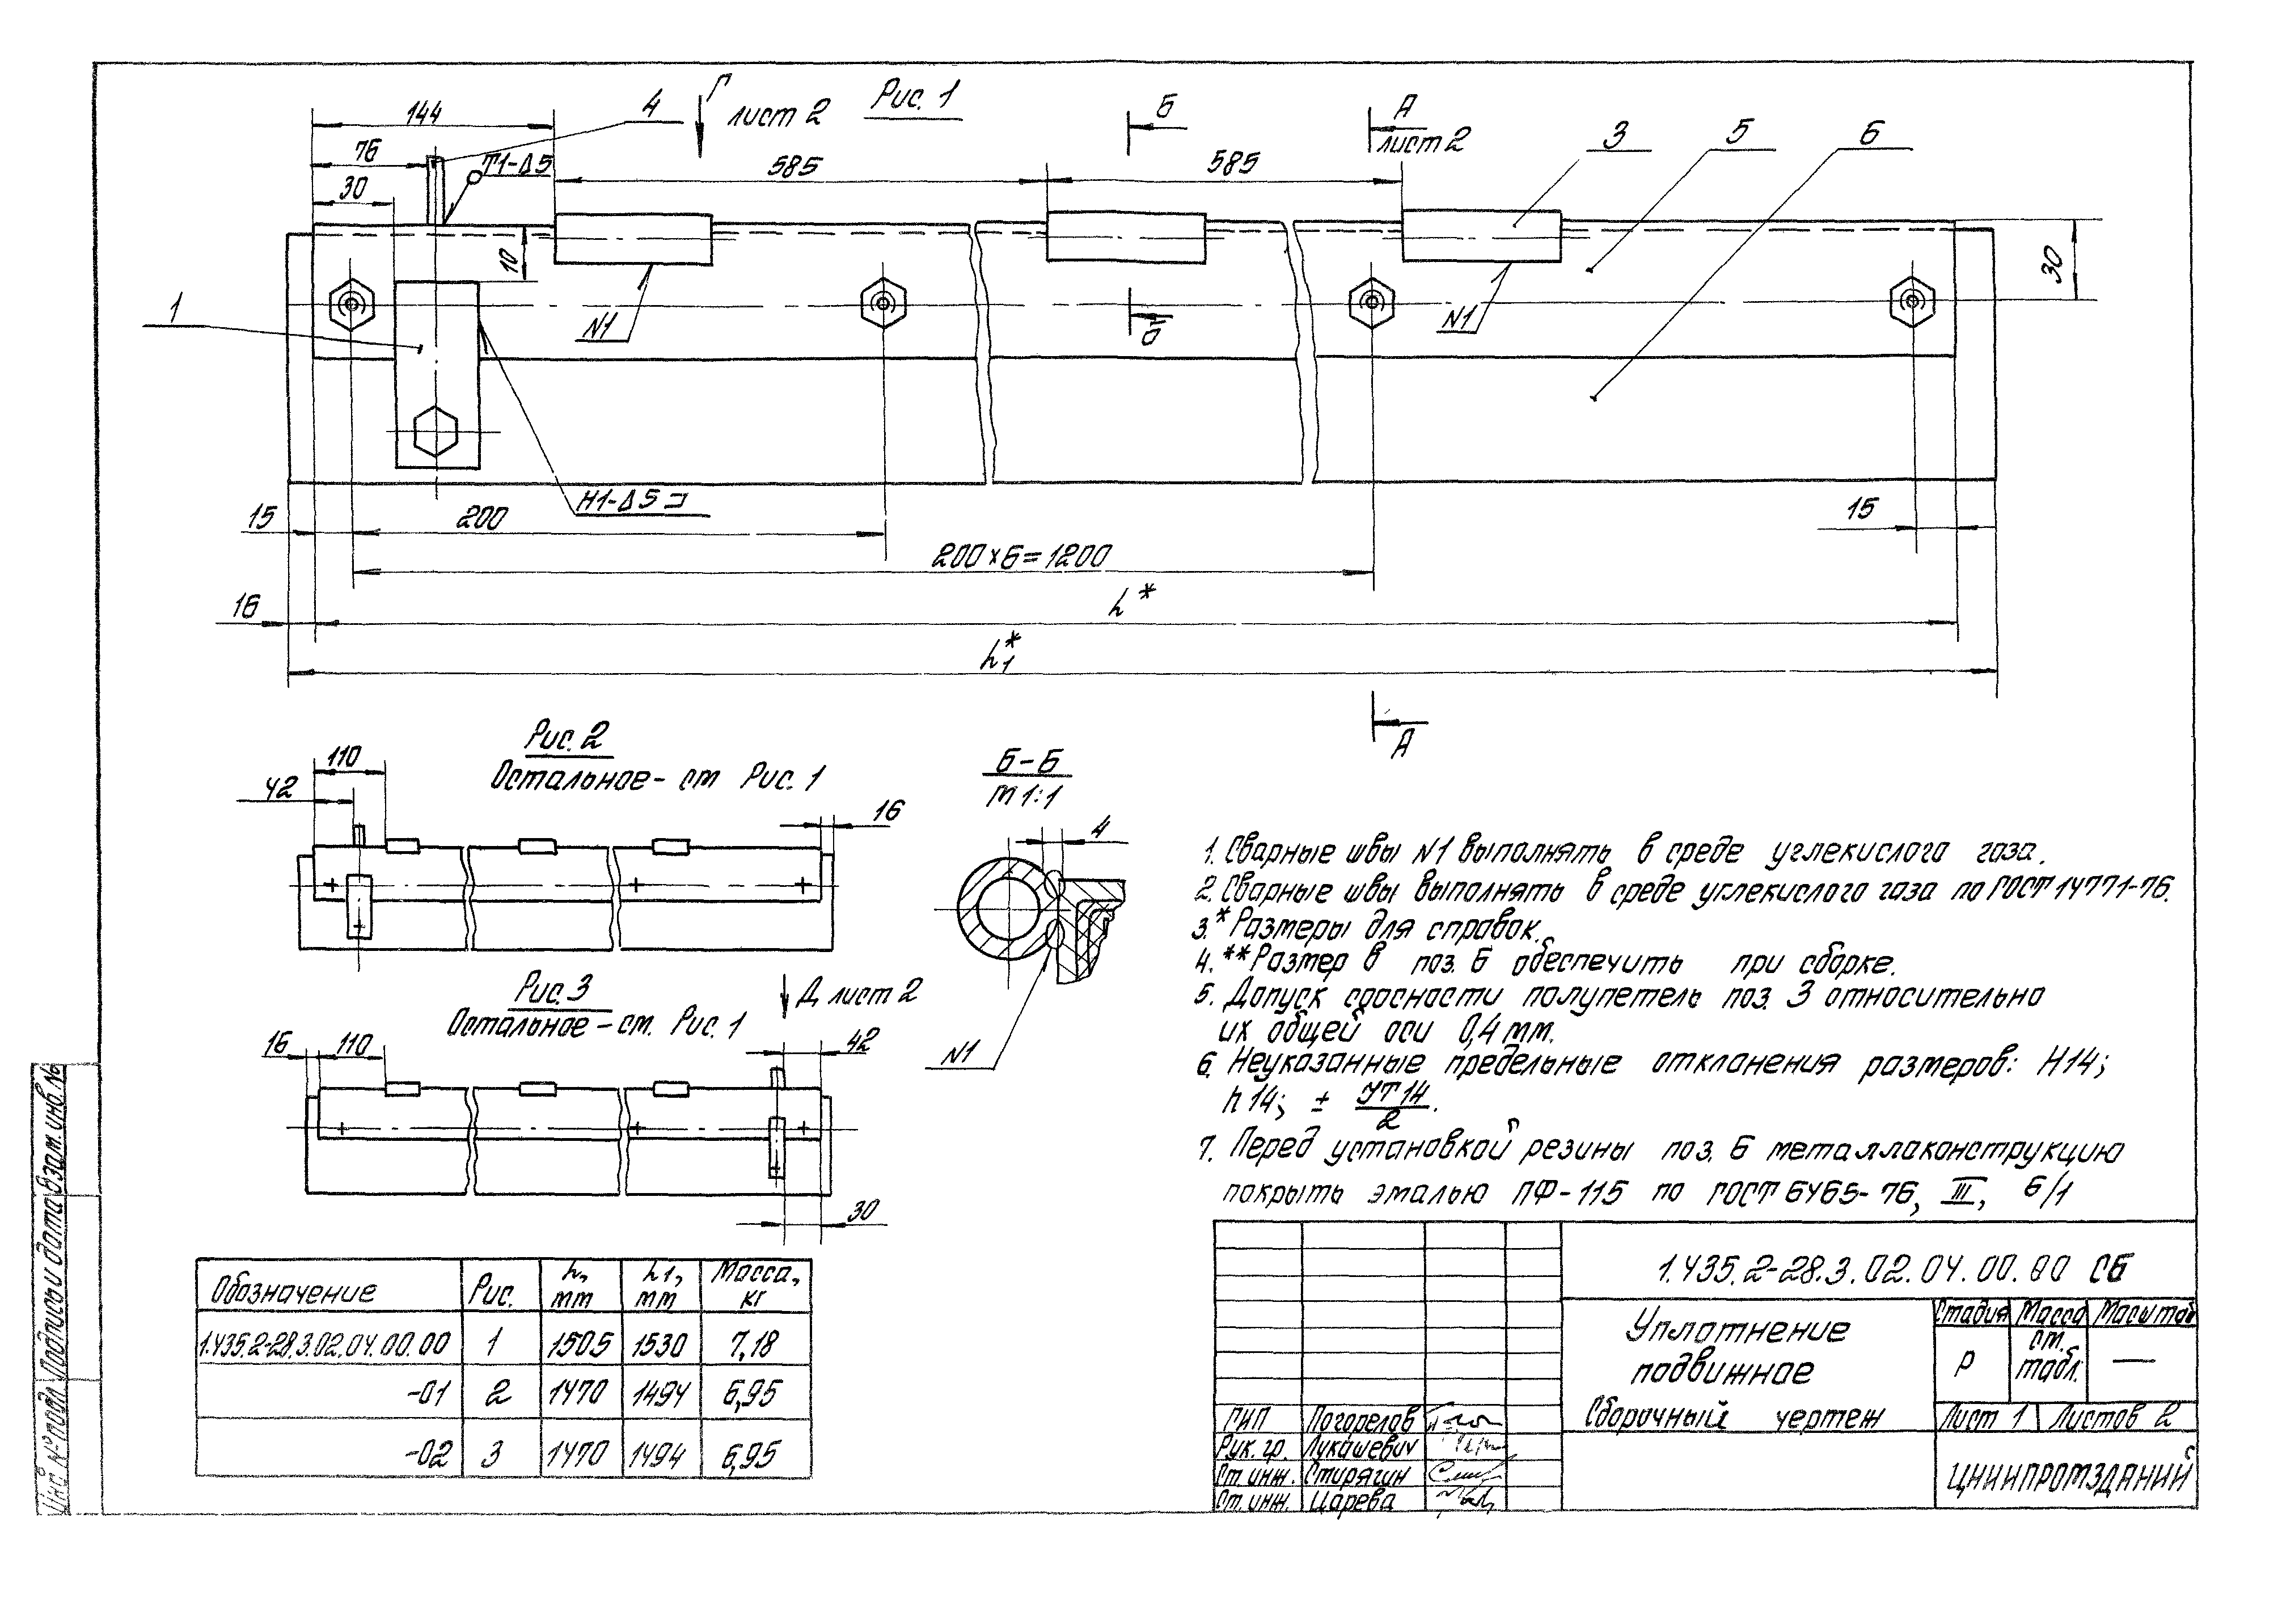 Г
лист 2
Рис. 1
Б
А
лист 2
144
4
76
Т1-Δ5
30
585
585
3
5
6
10
30
1
N1
N1
Б
Н1-Δ5
15
200
15
200×6=1200
16
h*
h₁*
А
Рис. 2
Остальное - см Рис. 1
110
42
16
Б-Б
М 1:1
4
N1
Рис. 3
Остальное - см. Рис. 1
Д лист 2
16
110
42
30
1. Сварные швы N1 выполнять в среде углекислого газа.
2. Сварные швы выполнять в среде углекислого газа по ГОСТ 14771-76.
3.* Размеры для справок.
4.** Размер в поз. 6 обеспечить при сборке.
5. Допуск соосности полупетель поз. 3 относительно
их общей оси 0,4 мм.
6. Неуказанные предельные отклонения размеров: Н14;
h14; ± УТ14/2.
7. Перед установкой резины поз. 6 металлоконструкцию
покрыть эмалью ПФ-115 по ГОСТ 6465-76, III, 6/1
Обозначение Рис. h, мм h1, мм Масса, кг
1.435.2-28.3.02.04.00.00 1 1505 1530 7,18
-01 2 1470 1494 6,95
-02 3 1470 1494 6,95
1.435.2-28.3.02.04.00.00 СБ
Уплотнение
подвижное
Сборочный чертеж
Стадия Масса Масштаб
Р см. табл. —
Лист 1 Листов 2
ЦНИИПРОМЗДАНИЙ
ГИП Погорелов
Рук. гр. Лукашевич
Ст. инж. Стирягин
Ст. инж. Царева
Инв. № подл. Подпись и дата Взам. инв. №